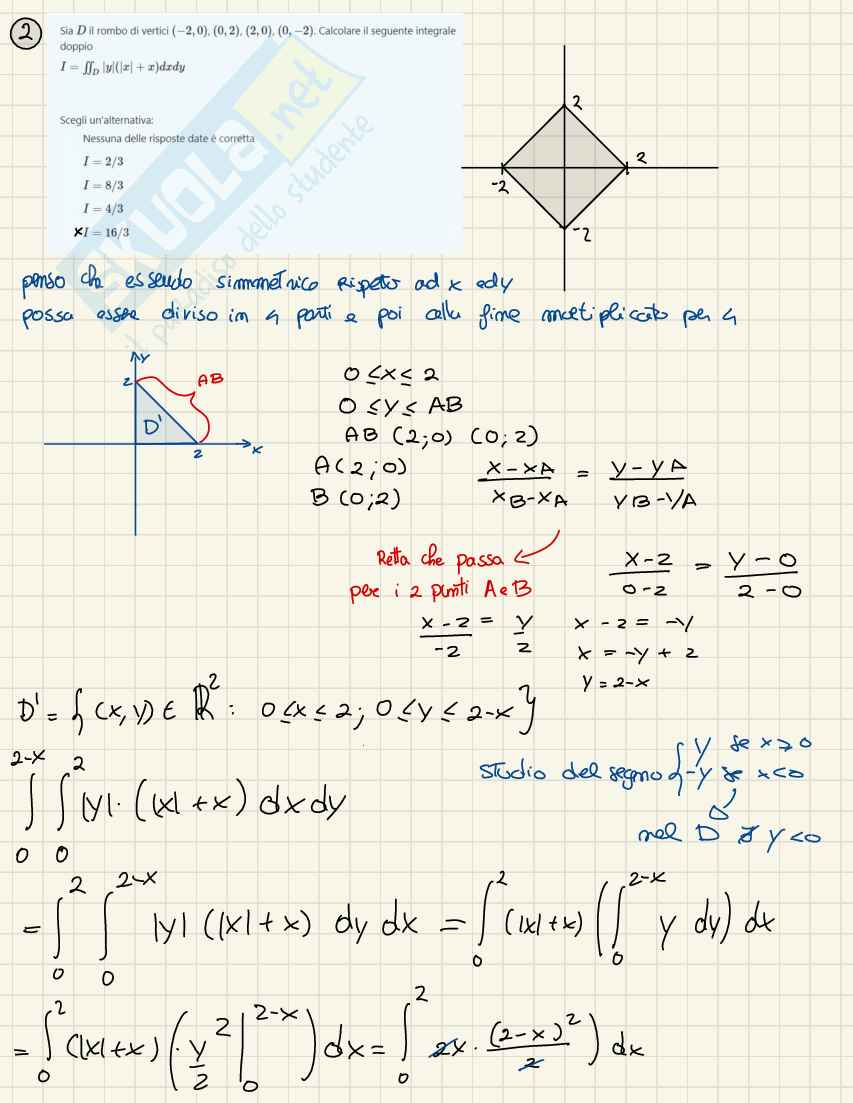 2
Sia D il rombo di vertici (−2, 0), (0, 2), (2, 0), (0, −2). Calcolare il seguente integrale
doppio
I = ∬_D |y|(|x| + x)dxdy
Scegli un'alternativa:
Nessuna delle risposte date è corretta
I = 2/3
I = 8/3
I = 4/3
x I = 16/3
SKUOLA.net
il paradiso dello studente
2
-2
2
-2
penso che essendo simmetrico rispetto ad x ed y
possa essere diviso in 4 parti e poi alla fine moltiplicato per 4
y
2
AB
D'
2
x
0 ≤ x ≤ 2
0 ≤ y ≤ AB
AB (2;0) (0;2)
A(2;0)
B(0;2)
x-xA / xB-xA = y-yA / yB-yA
Retta che passa
per i 2 punti A e B
x-2 / 0-2 = y-0 / 2-0
x-2 / -2 = y / 2
x - 2 = -y
x = -y + 2
y = 2-x
D' = { (x,y) ∈ ℝ² : 0 ≤ x ≤ 2; 0 ≤ y ≤ 2-x }
studio del segno { y se x ≥ 0
-y se x < 0
nel D ∄ y < 0
∫_0^{2-x} ∫_0^2 |y|· (|x| + x) dx dy
= ∫_0^2 ∫_0^{2-x} |y| (|x| + x) dy dx = ∫_0^2 (|x| + x) (∫_0^{2-x} y dy) dx
= ∫_0^2 (|x| + x) (· y²/2 |_0^{2-x}) dx = ∫_0^2 2x · (2-x)²/2 ) dx